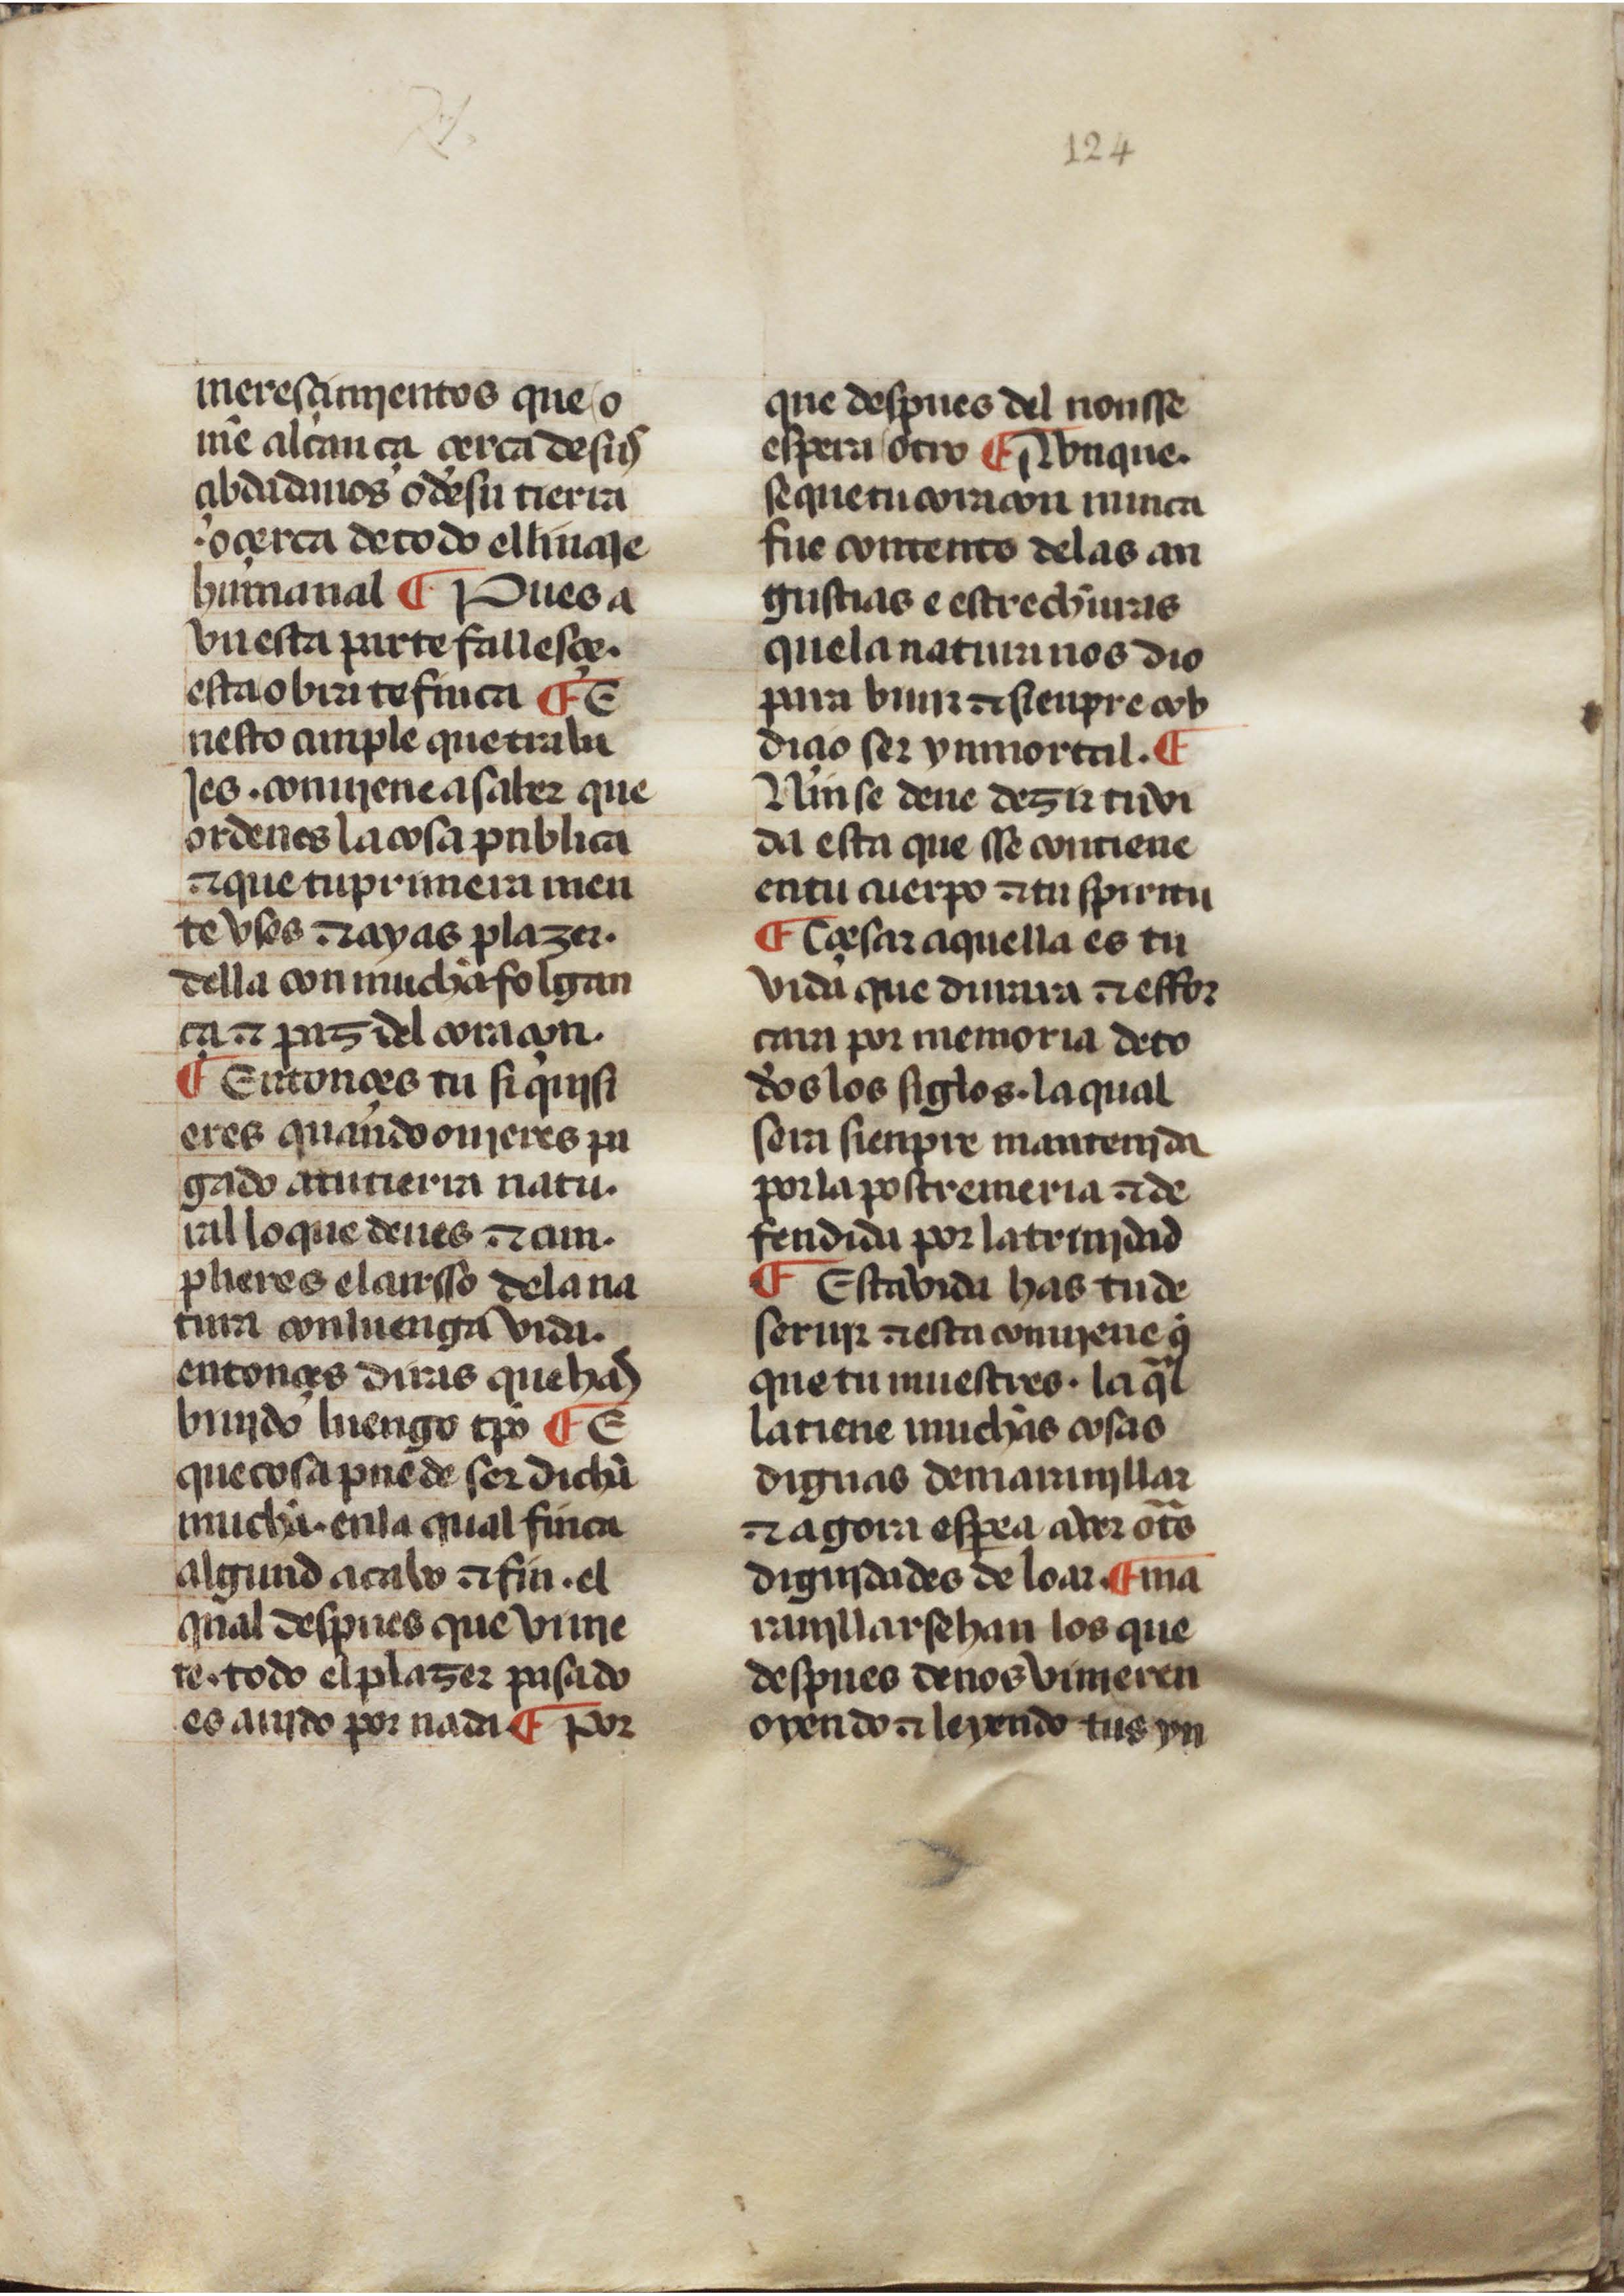 124
meresçimjentos que o
mē alcança çerca de sus
çibdadanos o de su tierra
o çerca de todo el linaje
humanal ¶ Pues a
vn esta parte fallesçe.
esta obra te finca ¶ E
n esto cunple que traba
jes. conujene a saber que
ordenes la cosa publica
⁊ que tu primera men
te vses ⁊ ayas plazer.
della con mucha folgan
ça ⁊ paz del coraçon.
¶ Entonçes tu si qujsi
eres quando oujeres pa
gado a tu tierra natu.
ral lo que deues ⁊ cun.
plieres el cursso de la na
tura con luenga vida.
entonçes diras que has
biujdo luengo tpō ¶ E
que cosa puede ser dicha
mucha. en la qual finca
algund acabo ⁊ fin. el
qual despues que vinje
re. todo el plazer pasado
es aujdo por nada ¶ por
que despues del non sse
espera otro ¶ Avnque.
se que tu coraçon nunca
fue contento de las an
gustias e estrechuras
que la natura nos dio
para biuir ⁊ sienpre cob
diçio ser ynmortal. ¶
Nin se deue dezir tu vi
da esta que sse contiene
en tu cuerpo ⁊ tu spiritu
¶ Çesar aquella es tu
vida que durara ⁊ effor
çara por memoria de to
dos los siglos. la qual
sera sienpre mantenjda
por la postremeria ⁊ de
fendida por la trinjdad
¶ Esta vida has tu de
serujr ⁊ esta conujene q̄
que tu muestres. la q̄l
la tiene muchas cosas
dignas de marauјllar
⁊ agora espera aver ot̄s
dignjdades de loar. ¶ ma
raujllar se han los que
despues de nos vinjeren
oyendo ⁊ leyendo tus yn